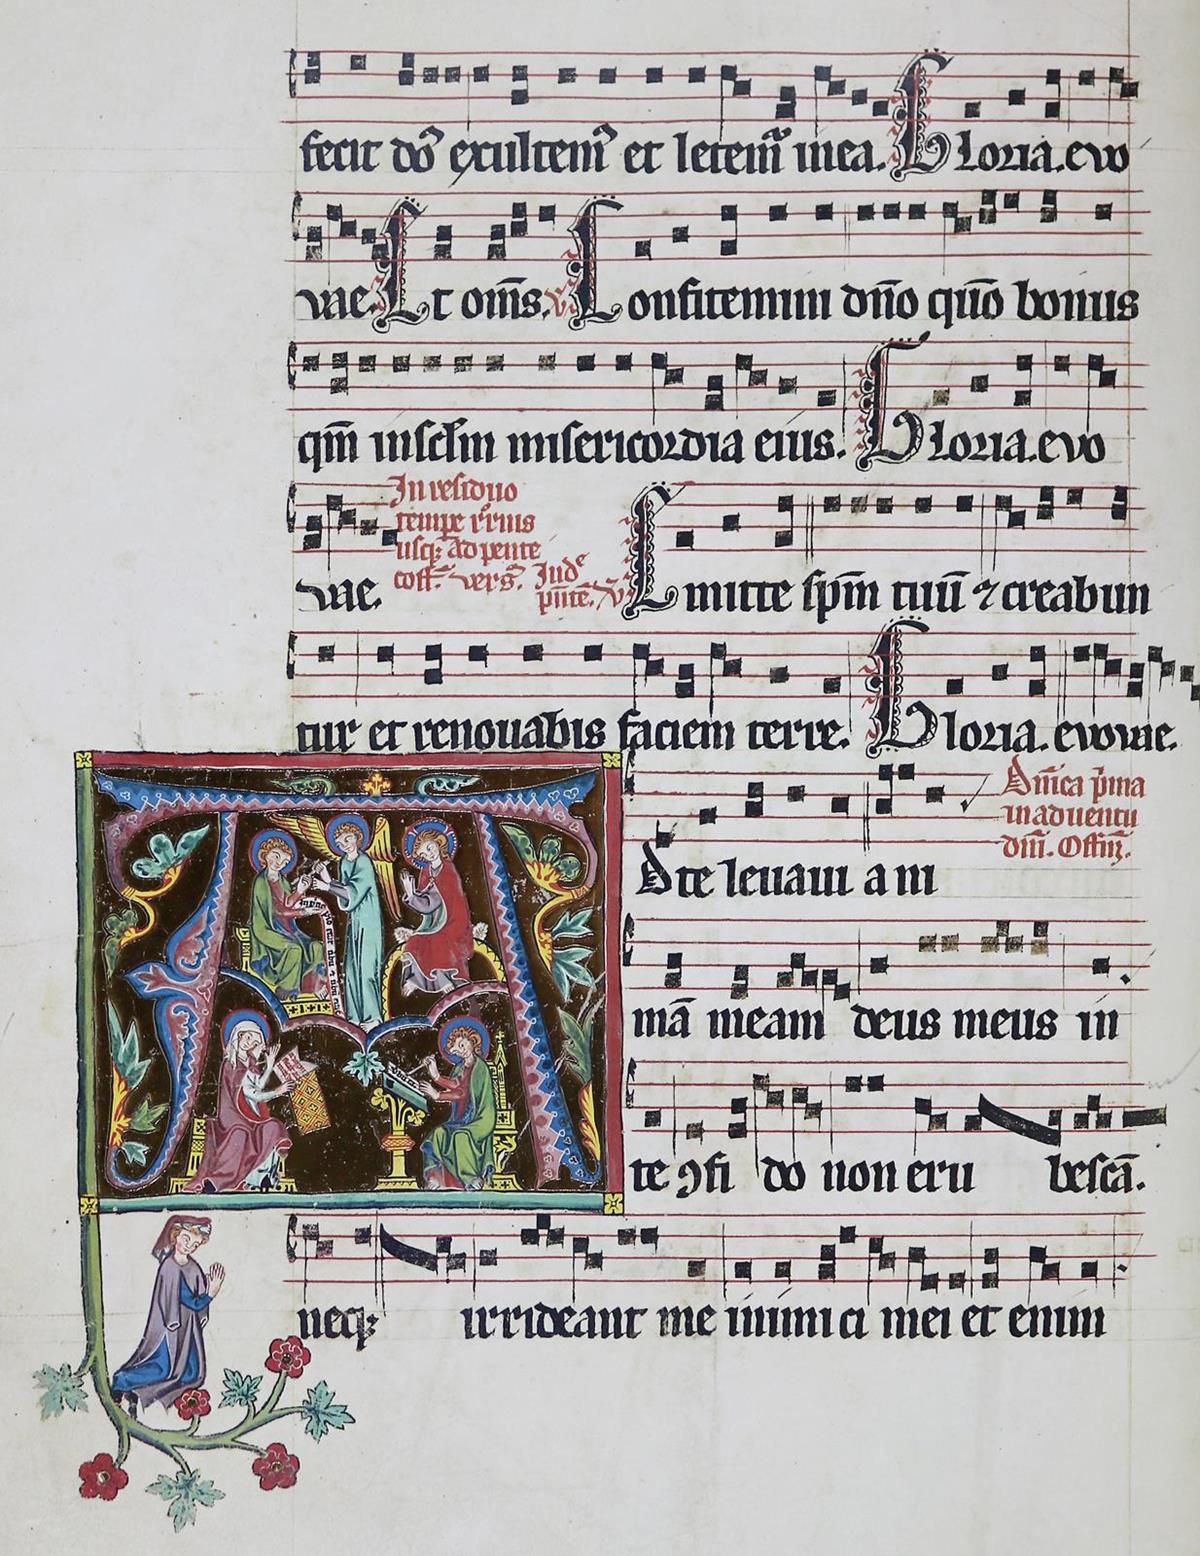 fecit dōs exultemꝰ et letem̃ in ea. Gloria. evo
vae. Et om̄s. ℣ Confitemini dn̄o qūo bonus
qm̄ in sclm̄ misericordia eius. Gloria. evo
In residuo
tempe
usq; ad pente
cost. vers.
vae. Emitte spm̄ tuū ⁊ creabun
tur et renouabis faciem terre. Gloria. evovae.
Dn̄ica p̄ma
in aduentu
dn̄i. Offm̄.
Ad te leuaui ani
mā meam deus meus in
te ꝯfido non erubescā.
neq; irrideant me inimici mei et enim